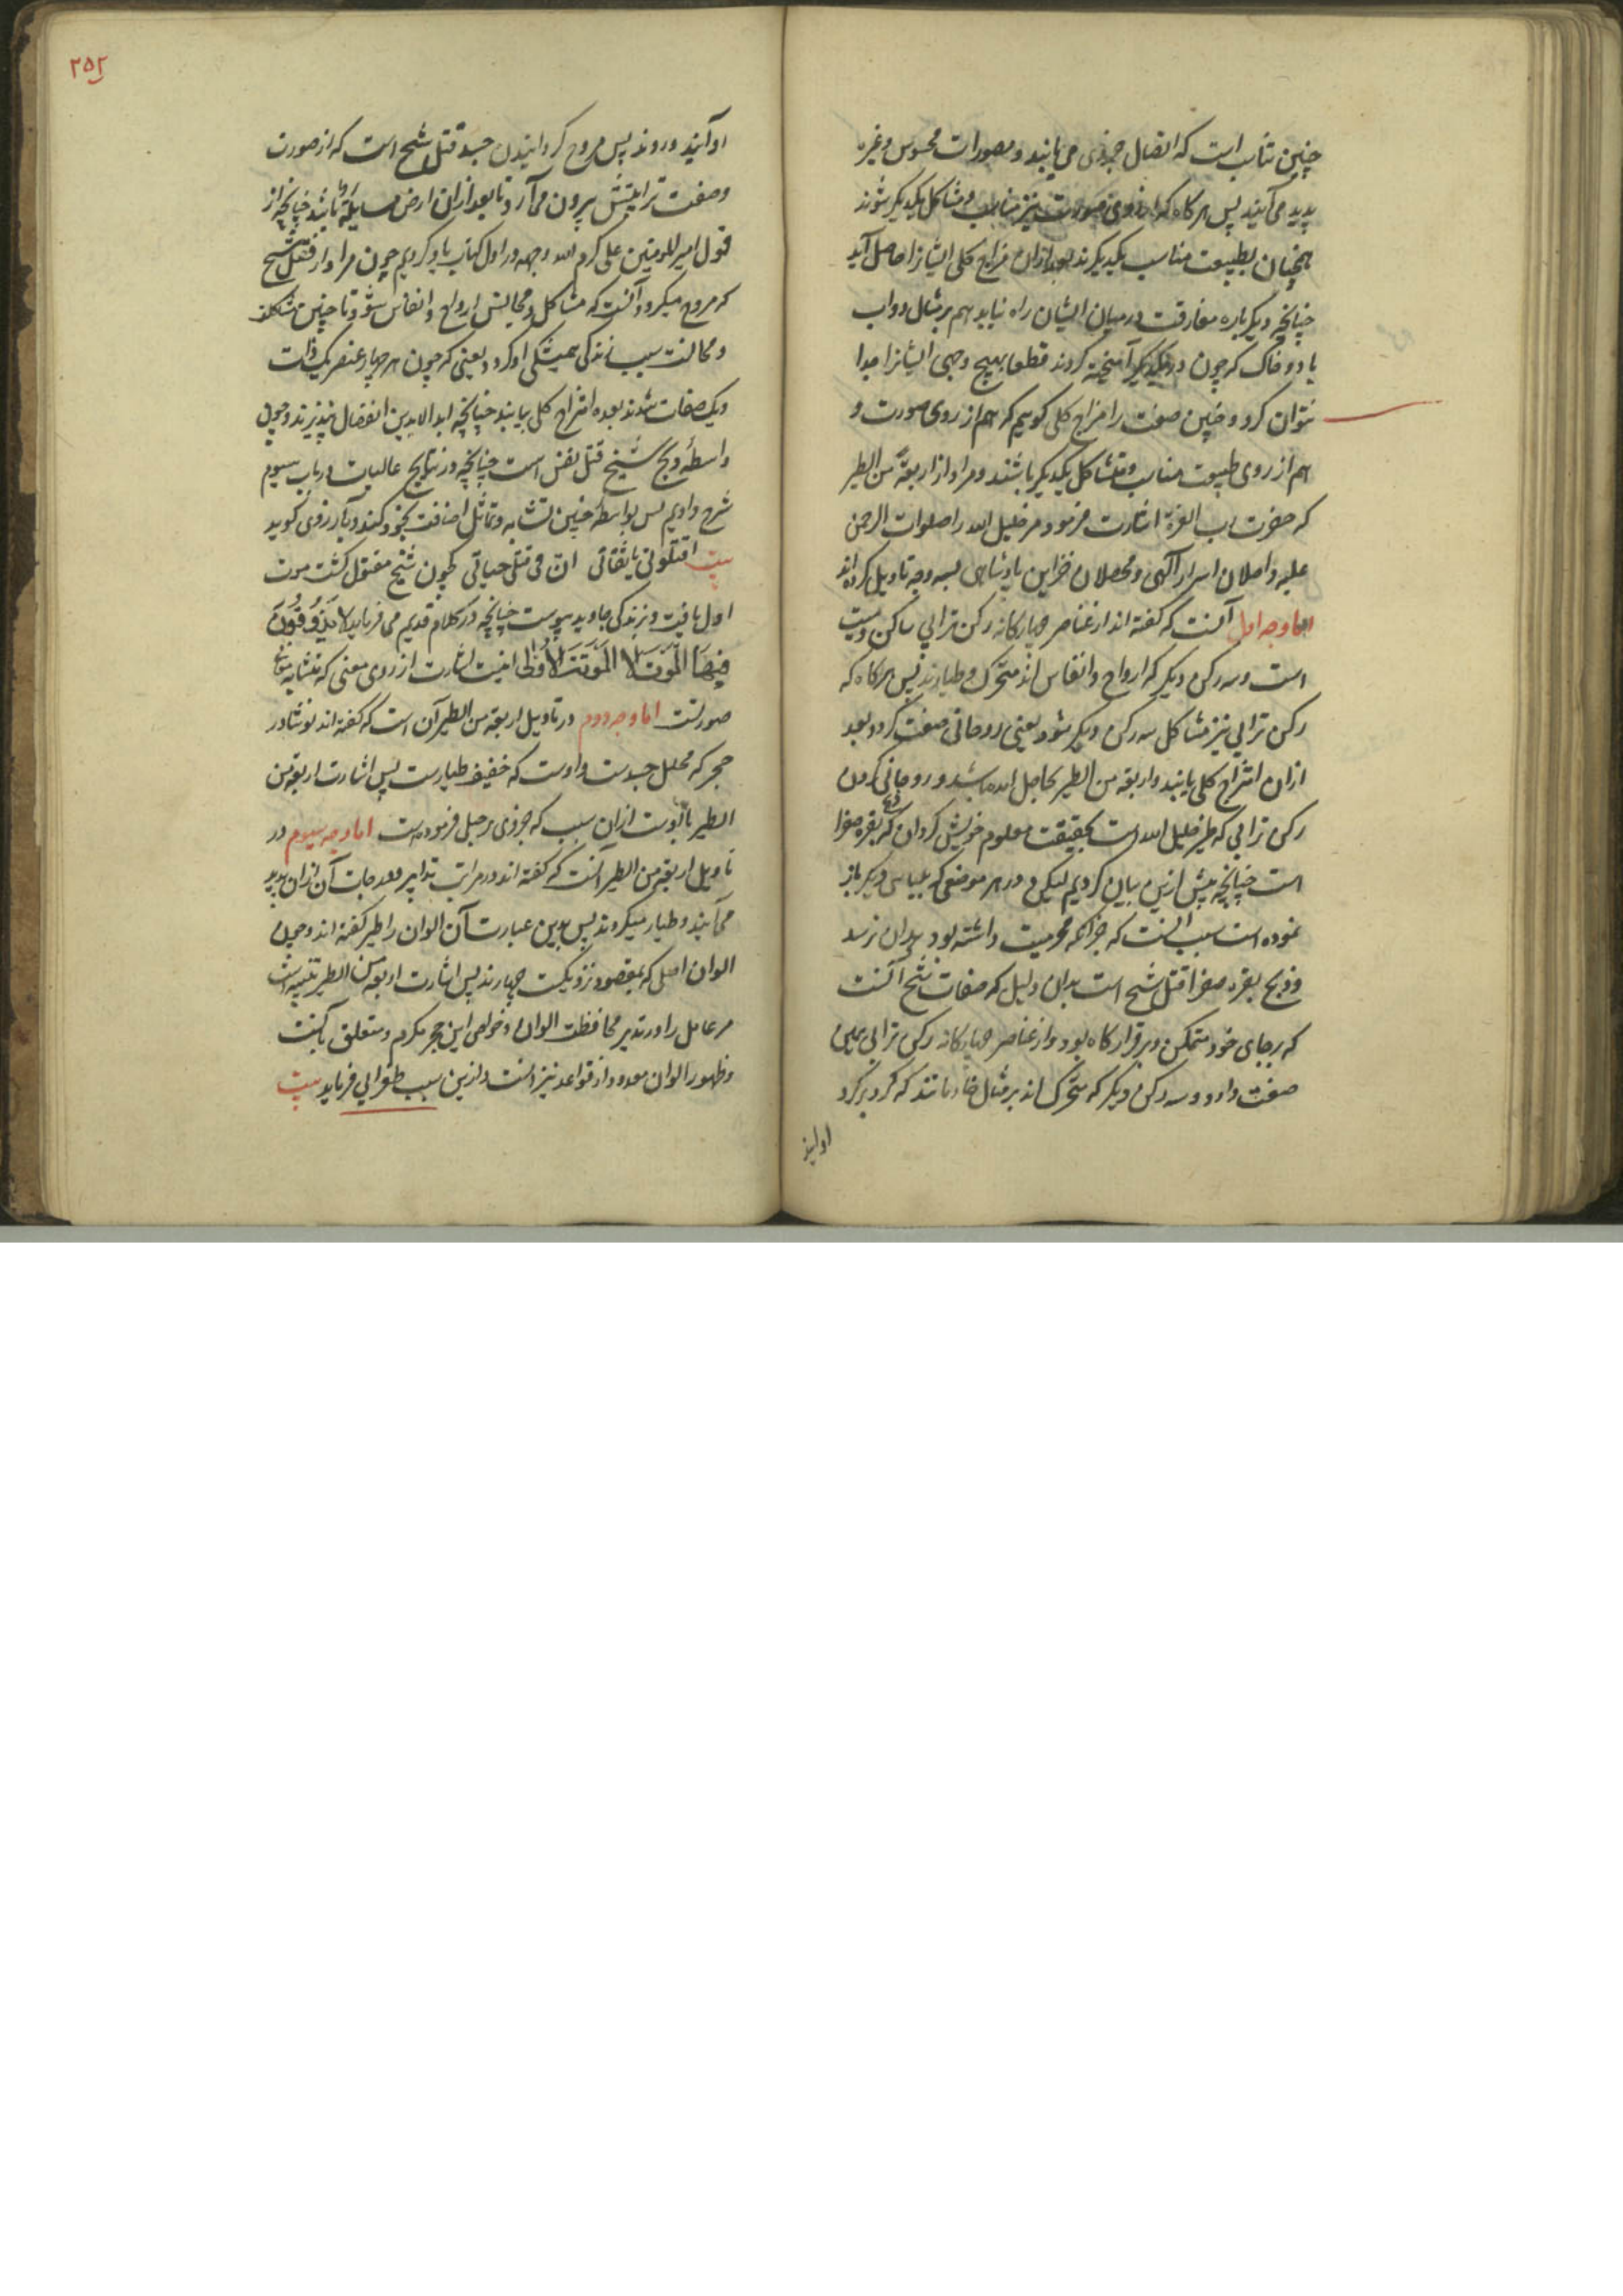 چنین تناسب است که اتصال جزوی می یابند و مصورات محسوس و غیره
پدید می آیند پس هرگاه که از روی صورت نیز مناسب و مشاکل یکدیگر شوند
همچنان بطبیعت مناسب یکدیگرند بعد ازان مزاج کلی ایشانرا حاصل آید
چنانچه دیگر باره مفارقت در میان ایشان راه نیابد هم بر مثال دو آب
یا دو خاک که چون در یکدیگر آمیخته گردند قطعا بهیچ وجهی ایشانرا جدا
نتوان کرد و چنین صفت را مزاج کلی گوییم که هم از روی صورت و
هم از روی طبیعت مناسب و متشاکل یکدیگر باشند و مراد از اربعة من الطیر
که حضرت رب العزة اشارت فرمود مر خلیل الله را صلوات الرحمن
علیه واصلان اسرار آلهی و محصلان خزاین پادشاهی بسه وجه تاویل کرده اند
اما وجه اول آنست که گفته اند از عناصر چهارگانه رکن ترابی ساکن و میت
است و سه رکن دیگر که ارواح و انفاس اند متحرک و طیارند پس هرگاه که
رکن ترابی نیز مشاکل سه رکن دیگر شود یعنی روحانی صفت گردد بعد
ازان امتزاج کلی یابند و اربعة من الطیر حاصل آمده باشد و روحانی کردن
رکن ترابی که طیر خلیل الله است بحقیقت معلوم خویش گردان که ذبح بقره صفرا
است چنانچه پیش ازین بیان کردیم لیکن در هر موضعی که بلباسی دیگر باز
نموده است سبب آنست که جز آنکه محرمیت داشته بود بدان نرسد
و ذبح بقره صفرا قتل شح است بدان دلیل که صفات شح آنست
که برجای خود متمکن و برقرارگاه بود و از عناصر چهارگانه رکن ترابی همین
صفت دارد و سه رکن دیگر که متحرک اند بر مثال مانند که گرد برگرد
او آیند
۲۵۲
او آیند و روند پس مروح گردانیدن جسد قتل شح است که از صورت
و صفت ترابیتش بیرون می آرد تا بعد ازان ارض سایله باشد چنانچه از
قول امیر المومنین علی کرم الله وجهه در اول کتاب یاد کردیم چون مراد از قتل شح
که مروح میگردد آنست که مشاکل و مجانس ارواح و انفاس شود و تا چنین مشاکلت
و مجالست سبب زندگی همیشگی او گردد یعنی که چون هر چهار عنصر یک ذات
و یک صفات شدند بعده امتزاج کلی بیابند چنانچه ابد الابدین انفصال نپذیرند و چون
واسطه ذبح شیخ قتل نفس است چنانچه در نتایج عالیات در باب سیوم
شرح دادیم پس بواسطه چنین تشابه و تماثل اضافت بخود کند و بآرزوی گوید
بیت اقتلونی یا ثقاتی ان فی قتلی حیاتی که چون شح مقتول گشت موت
اول یافت و بزندگی جاوید پیوست چنانچه در کلام قدیم می فرماید لا یذوقون
فیها الموت الا الموتة الاولی اینست اشارت از روی معنی که متشابه
صورتست اما وجه دوم در تاویل اربعة من الطیر آن است که گفته اند نوشادر
حجر که محلل جسدست و اوست که خفیف طیارست پس اشارت اربعة من
الطیر باوست ازان سبب که جزوی بر جبلی فرموده ست اما وجه سیوم در
تاویل اربعة من الطیر آنست که گفته اند در مراتب تدابیر و درجات آن الوان پدید
می آیند و طیار میگردند پس بدین عبارت آن الوان را طیر گفته اند و چون
الوان اصلی که بمقصود نزدیکست چهارند پس اشارت اربعة من الطیر تنبیه است
مر عامل را در تدبیر محافظت الوان و خواص این حجر مکرم و متعلق بآنست
و ظهور الوان معدود از قواعد نیز است و ازین سبب طغرایی فرماید بیت